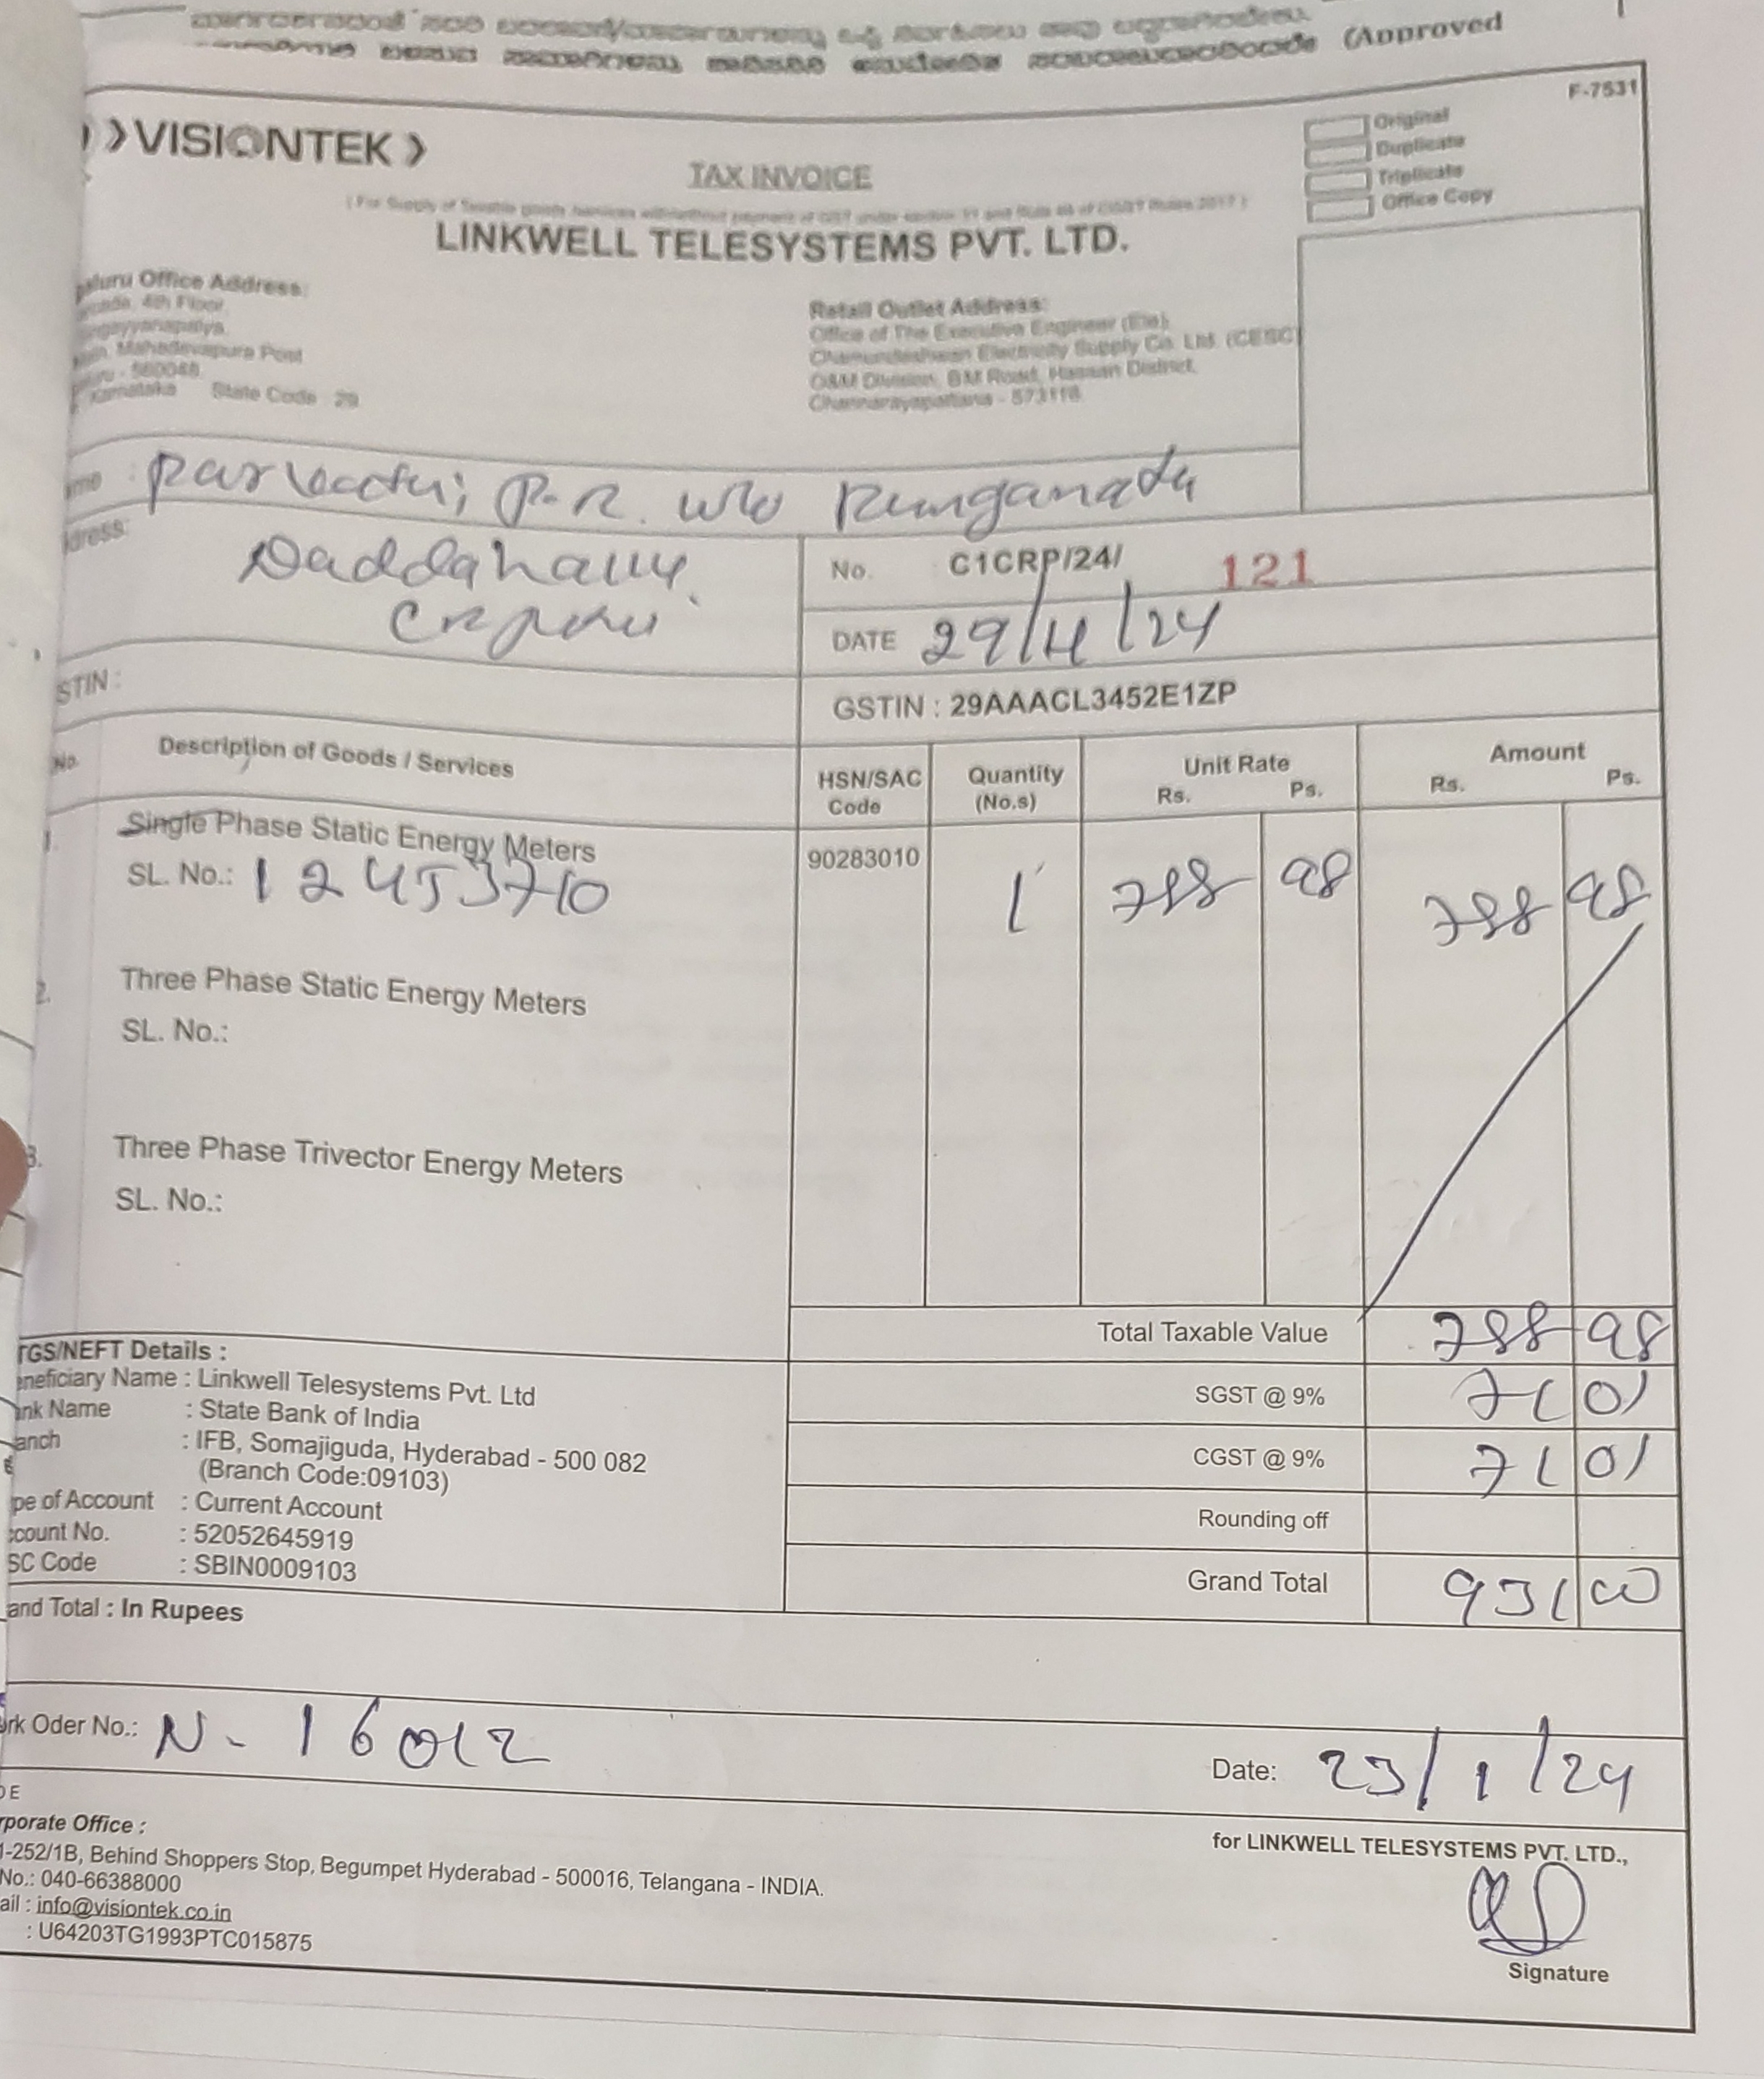 (Approved
F-7531
VISIONTEK
Original
Duplicate
Triplicate
Office Copy
TAX INVOICE
LINKWELL TELESYSTEMS PVT. LTD.
Office Address:
4th Floor,
Mahadevapura Post
- 560048.
Karnataka State Code : 29
Retail Outlet Address:
Office of The Executive Engineer (Ele),
Chamundeshwari Electricity Supply Co. Ltd. (CESC)
O&M Division, BM Road, Hassan District,
Channarayapattana - 573116
P.R. w/o
No. C1CRP/24/ 121
DATE 29/4/24
STIN :
GSTIN : 29AAACL3452E1ZP
No. Description of Goods / Services HSN/SAC Code Quantity (No.s) Unit Rate Rs. Ps. Amount Rs. Ps.
1. Single Phase Static Energy Meters 90283010 1 788 98 788 98
SL. No.: 12453710
2. Three Phase Static Energy Meters
SL. No.:
3. Three Phase Trivector Energy Meters
SL. No.:
Total Taxable Value 788 98
SGST @ 9% 71 01
CGST @ 9% 71 01
Rounding off
Grand Total 931 00
TGS/NEFT Details :
eneficiary Name : Linkwell Telesystems Pvt. Ltd
ank Name : State Bank of India
anch : IFB, Somajiguda, Hyderabad - 500 082
(Branch Code:09103)
pe of Account : Current Account
ccount No. : 52052645919
SC Code : SBIN0009103
and Total : In Rupees
ork Oder No.: N - 16012
Date: 23/1/24
OE
rporate Office :
1-252/1B, Behind Shoppers Stop, Begumpet Hyderabad - 500016, Telangana - INDIA.
No.: 040-66388000
ail : info@visiontek.co.in
: U64203TG1993PTC015875
for LINKWELL TELESYSTEMS PVT. LTD.,
Signature